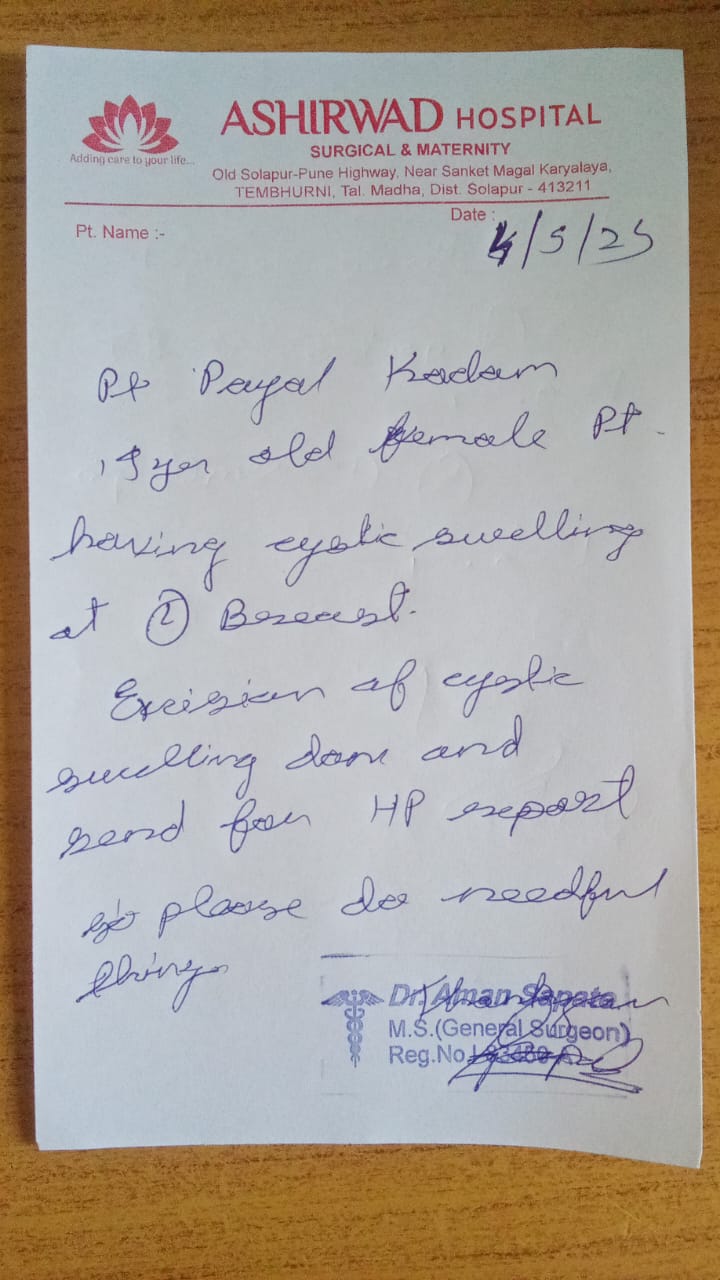 ASHIRWAD HOSPITAL
Adding care to your life...
SURGICAL & MATERNITY
Old Solapur-Pune Highway, Near Sanket Magal Karyalaya,
TEMBHURNI, Tal. Madha, Dist. Solapur - 413211
Date :
Pt. Name :-
4/5/25
Pt Payal Kadam
19 yer old female Pt.
having cystic swelling
at Breast.
Excision of cystic
swelling done and
send for HP report
so please do needful
thing
Thank you
Dr. Aman Sapate
M.S.(General Surgeon)
Reg.No.